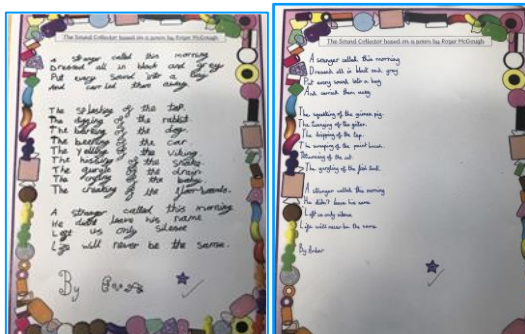 The Sound Collector based on a poem by Roger McGough
A stranger called this morning
Dressed all in black and grey
Put every sound into a bag
And carried them away.
The splashing of the tap.
The digging of the rabbit.
The barking of the dog.
The beeping of the car.
The yelling of the viking.
The hissing of the snake.
The gurgle of the drain
The crying of the baby.
The creaking of the floor-boards.
A stranger called this morning
He didnt leave his name
Left us only silence
Life will never be the same.
By
The Sound Collector based on a poem by Roger McGough
A stranger called this morning
Dressed all in black and grey
Put every sound into a bag
And carried them away
The squeaking of the guinea pig.
The twanging of the guitar.
The dripping of the tap.
The scraping of the paint brush.
of the cat.
The gurgling of the fish tank.
A stranger called this morning
He didn't leave his name
Left us only silence
Life will never be the same
By